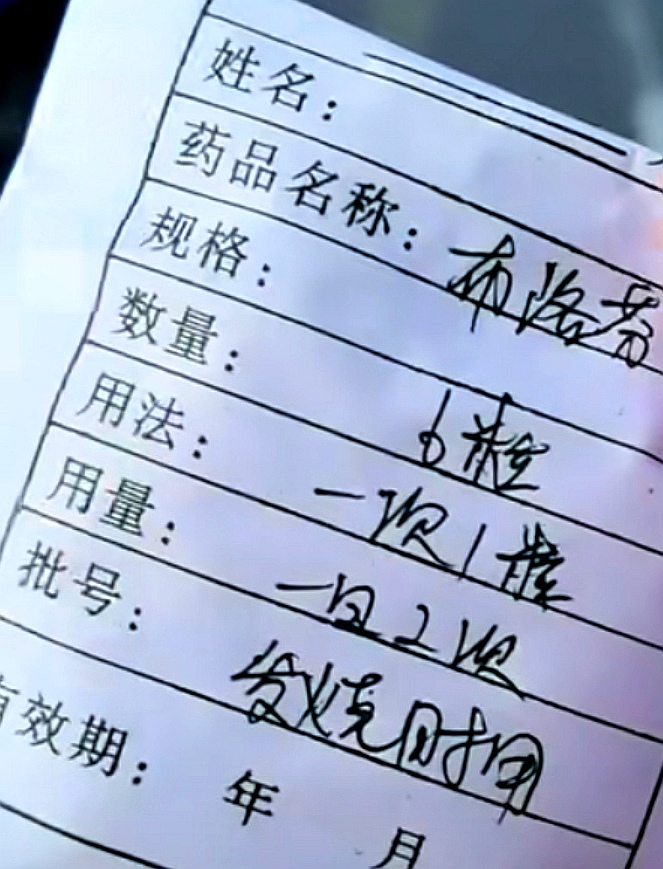 姓名：
药品名称：布洛芬
规格：
数量：6粒
用法：一次1粒
用量：一日2次
批号：发烧时用
有效期：年 月